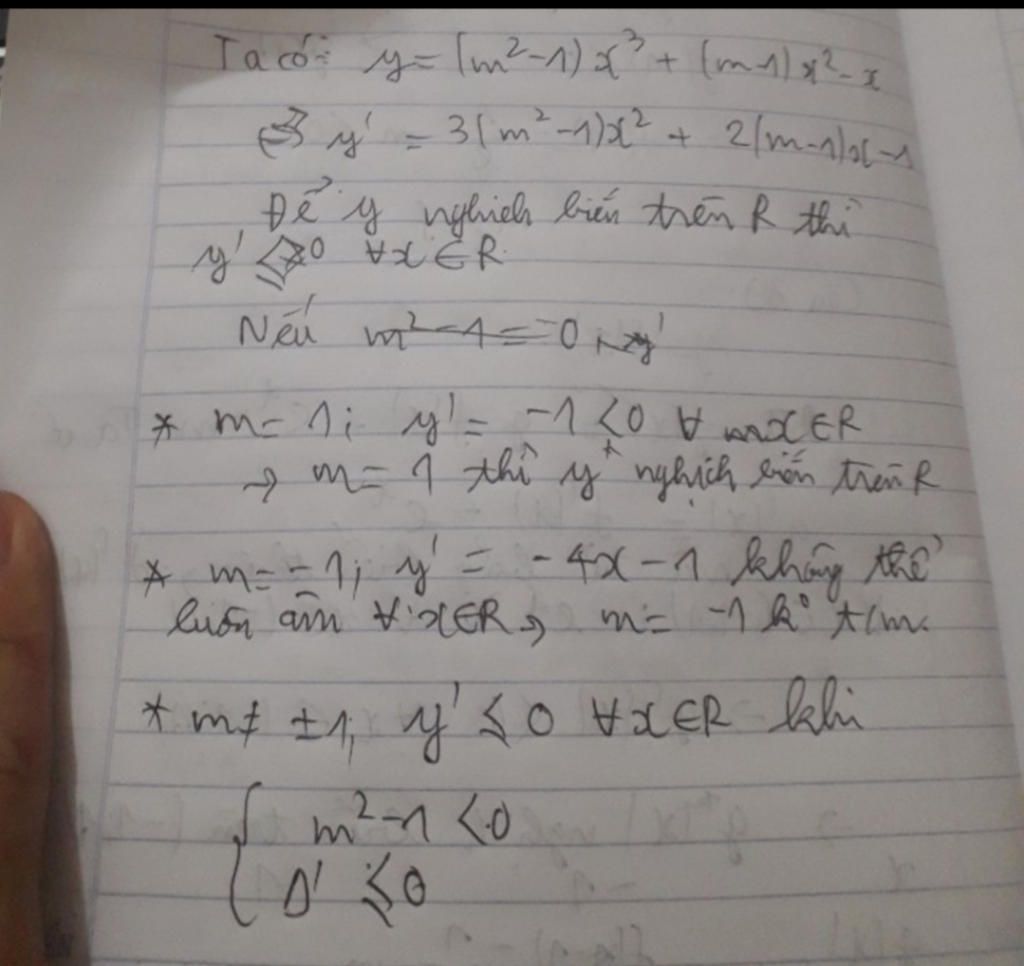 Ta có: y = (m²-1)x³ + (m-1)x² - x
y' = 3(m²-1)x² + 2(m-1)x - 1
Để y nghịch biến trên R thì
y' ≤ 0 ∀x ∈ R.
Nếu m²-1 = 0
* m = 1; y' = -1 < 0 ∀ x ∈ R
→ m = 1 thì y nghịch biến trên R
* m = -1; y' = -4x - 1 không thể
luôn âm ∀ x ∈ R → m = -1 k° t/m.
* m ≠ ±1; y' ≤ 0 ∀x ∈ R khi
m²-1 < 0
Δ' ≤ 0